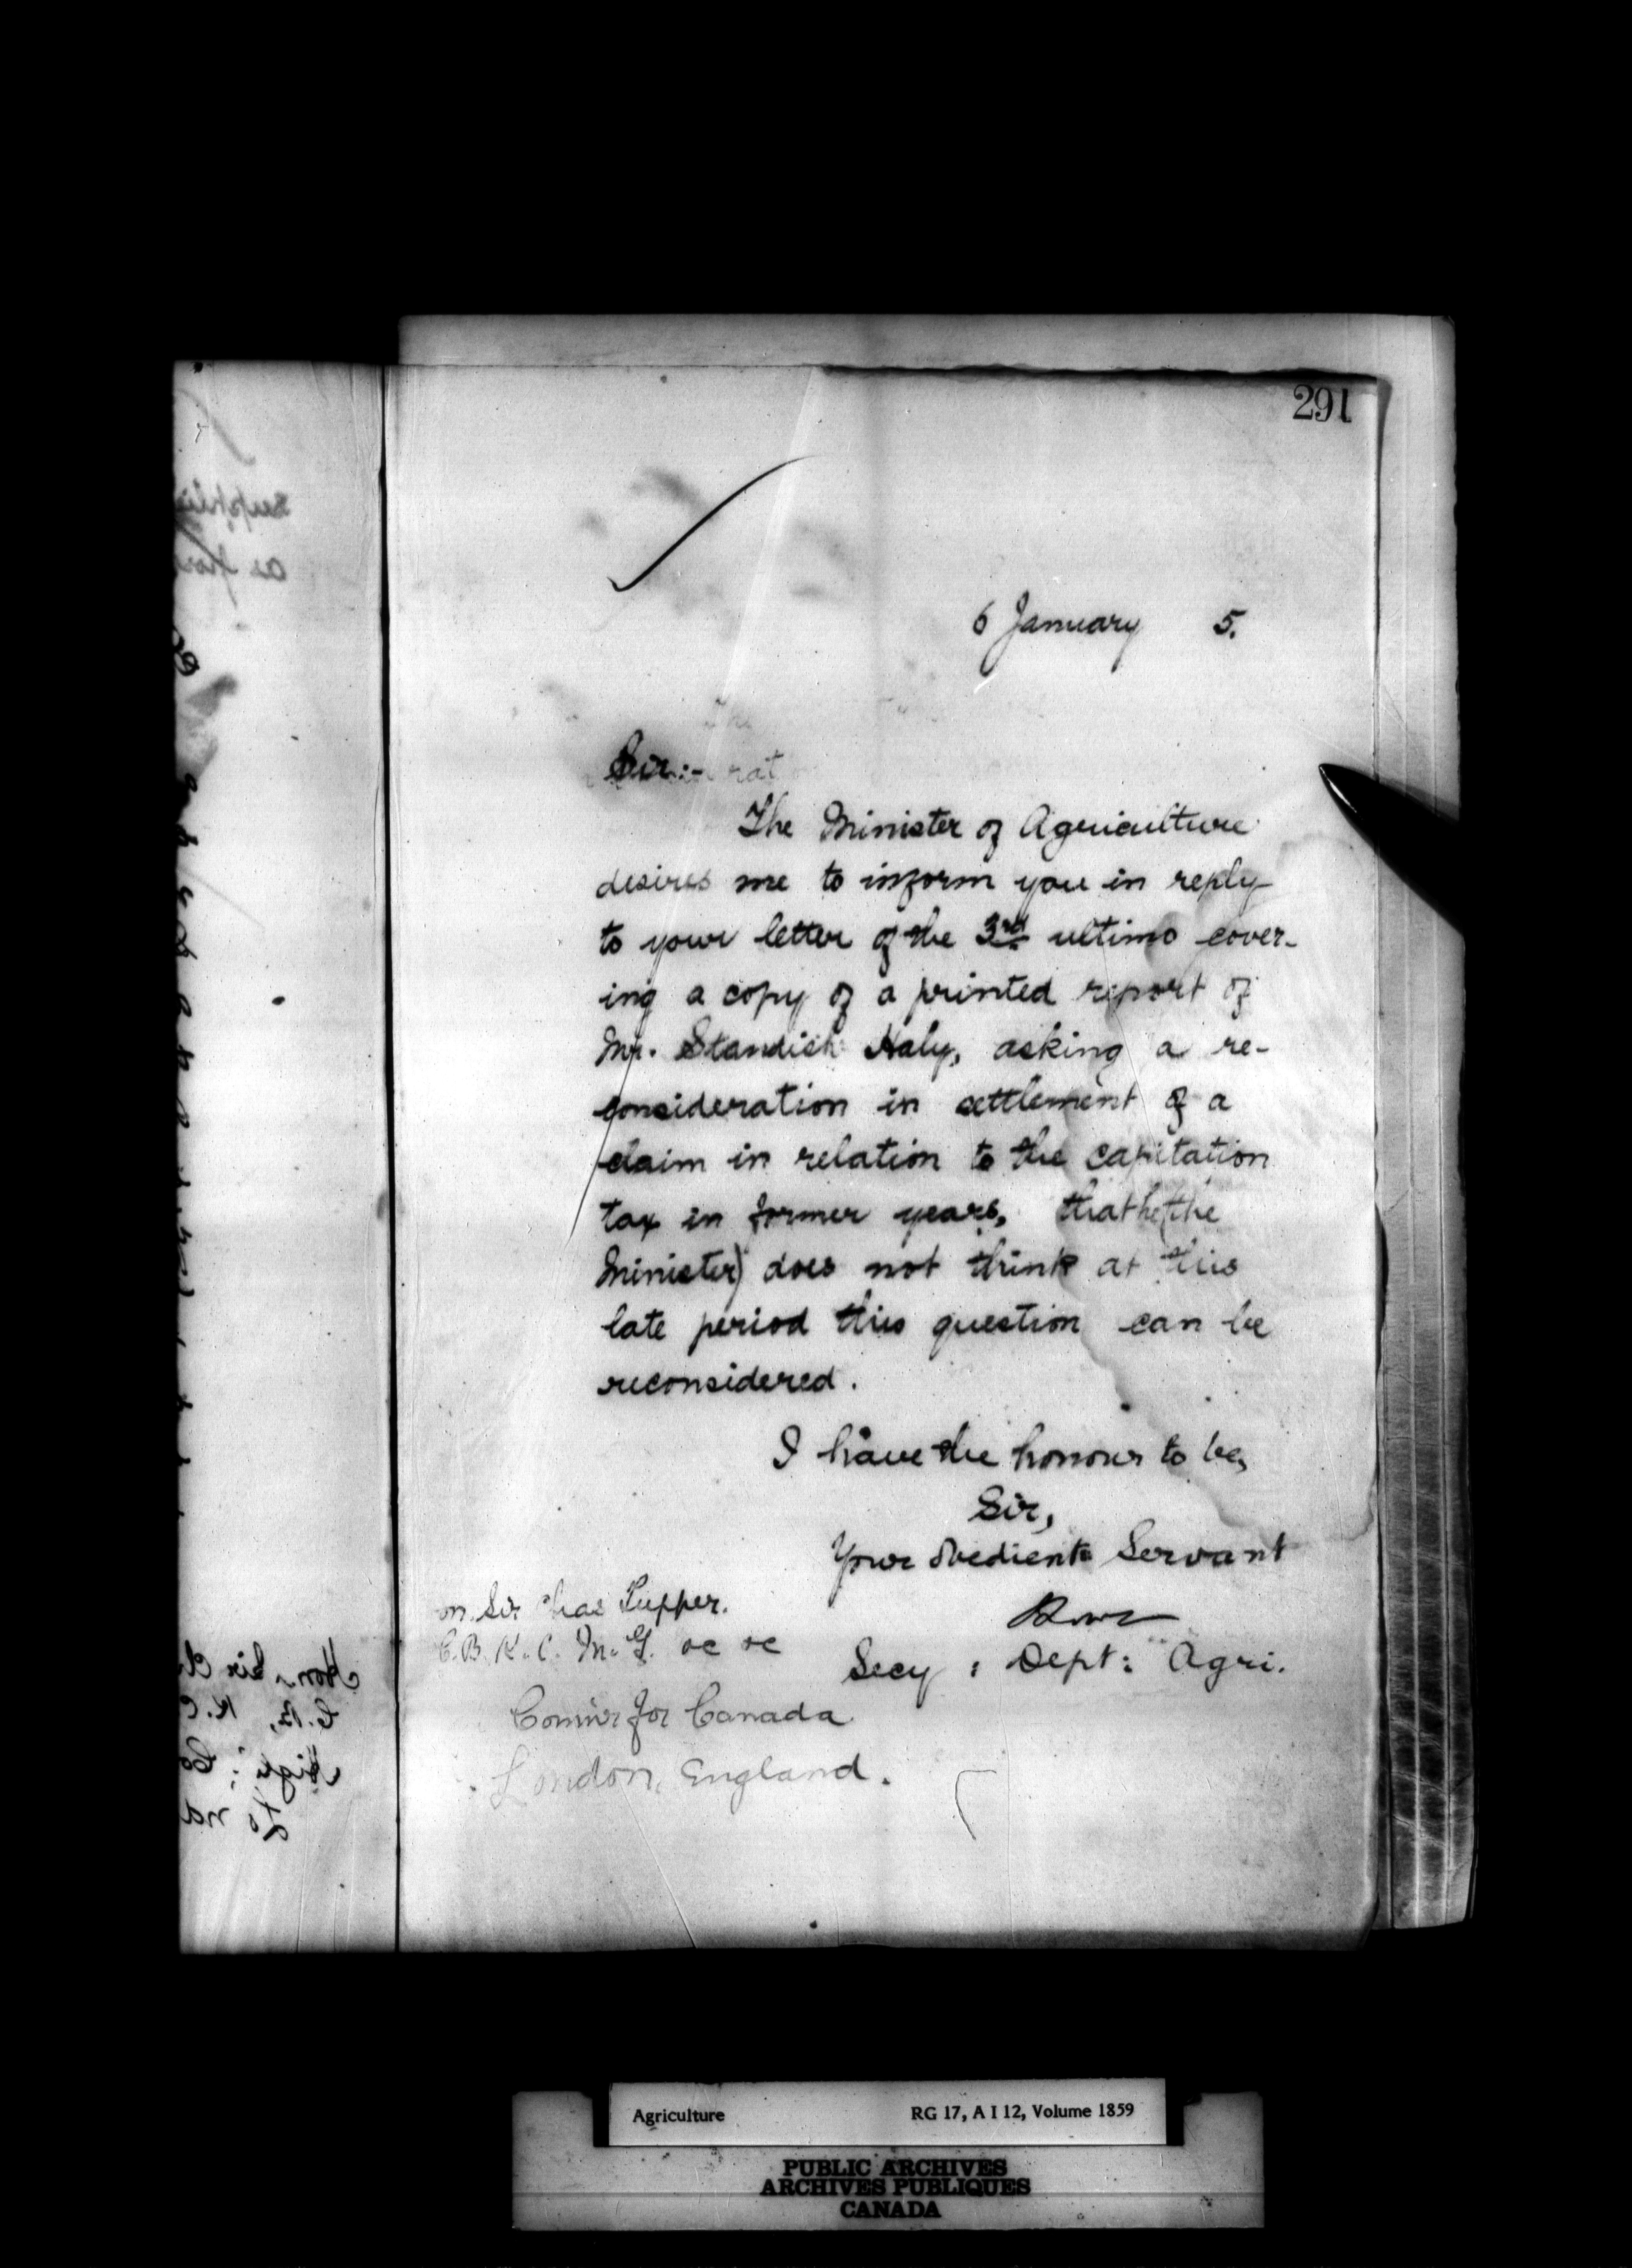 291
6 January 5.
Sir:-
The Minister of Agriculture
desires me to inform you in reply
to your letter of the 3rd ultimo cover-
ing a copy of a printed report of
Mr. Standish Haly, asking a re-
consideration in settlement of a
claim in relation to the capitation
tax in former years, that he (the
Minister) does not think at this
late period this question can be
reconsidered.
I have the honour to be,
Sir,
Your obedient Servant
Secy : Dept: Agri.
on. Sir Chas Tupper.
C.B. K.C.M.G. &c &c
Comm'r for Canada
London, England.
Agriculture RG 17, A I 12, Volume 1859
PUBLIC ARCHIVES
ARCHIVES PUBLIQUES
CANADA